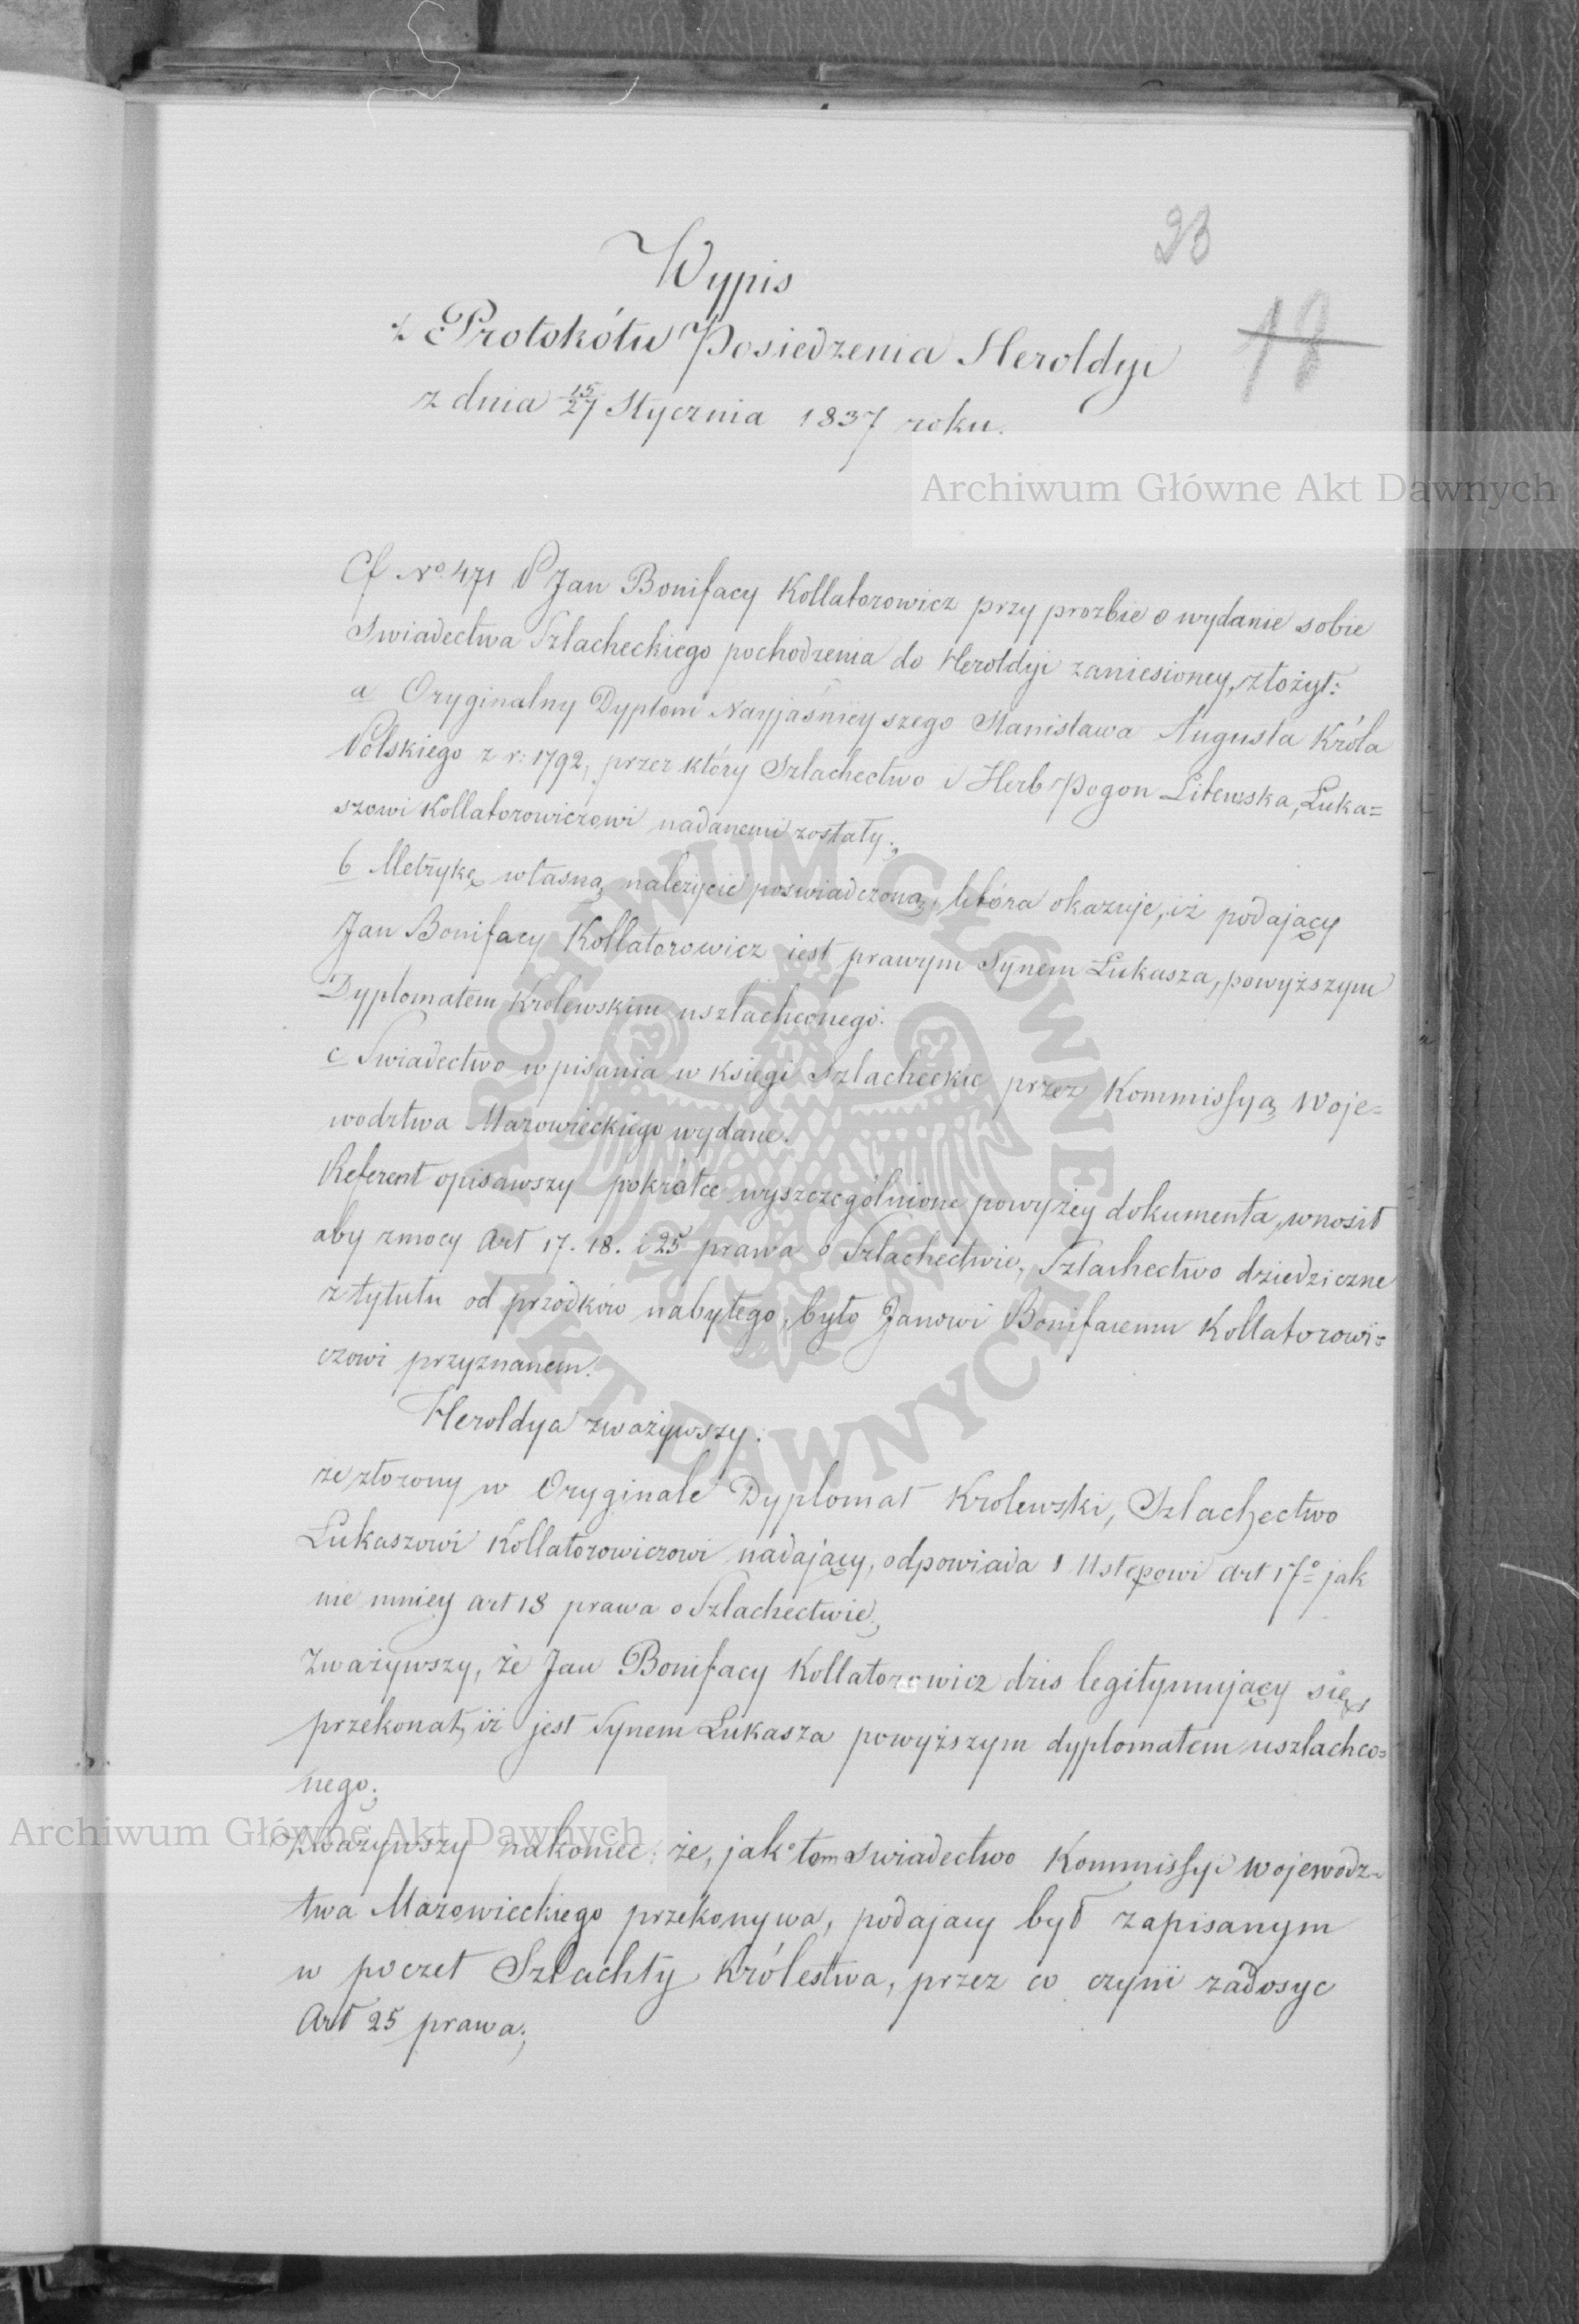 23
Wypis
z Protokółu Posiedzenia Heroldyi
18
z dnia 15/27 Stycznia 1837 roku.
Archiwum Główne Akt Dawnych
Cf No. 471 P Jan Bonifacy Kollatorowicz przy prozbie o wydanie sobie
Swiadectwa Szlacheckiego pochodzenia do Heroldyi zaniesioney, złożył:
a Oryginalny Dyplom Nayjaśnieyszego Stanisława Augusta Króla
Polskiego z r: 1792, przez który Szlachectwo i Herb Pogon Litewska, Łuka=
szowi Kollatorowiczowi nadanemi zostały;
b Metrykę własną należycie poswiadczoną, która okazuje, iż podający
Jan Bonifacy Kollatorowicz iest prawym Synem Łukasza, powyższym
Dyplomatem Krolewskim uszlachconego.
c Swiadectwo wpisania w księgi Szlacheckie przez Kommissyą Woje=
wodztwa Mazowieckiego wydane.
Referent opisawszy pokrótce wyszczególnione powyżey dokumenta, wnosił
aby zmocy Art 17. 18. i 25 prawa o Szlachectwie, Szlachectwo dziedziczne
z tytułu od przodków nabytego, było Janowi Bonifacemu Kollatorowi=
czowi przyznanem.
Heroldya zważywszy:
ze złozony w Oryginale Dyplomat Krolewski, Szlachectwo
Łukaszowi Kollatorowiczowi nadający, odpowiada 1 Ustępowi art 17o jak
nie mniey art 18 prawa o Szlachectwie,
Zważywszy, że Jan Bonifacy Kollatorowicz dzis legitymujący się,
przekonał, iż jest Synem Łukasza powyższym dyplomatem uszlachco=
nego;
Archiwum Główne Akt Dawnych
Zważywszy nakoniec: że, jak tem swiadectwo Kommissyi Wojewodz=
twa Mazowieckiego przekonywa, podający był zapisanym
w poczet Szlachty Królestwa, przez co czyni zadosyc
Art 25 prawa;
ARCHIWUM GŁÓWNE AKT DAWNYCH